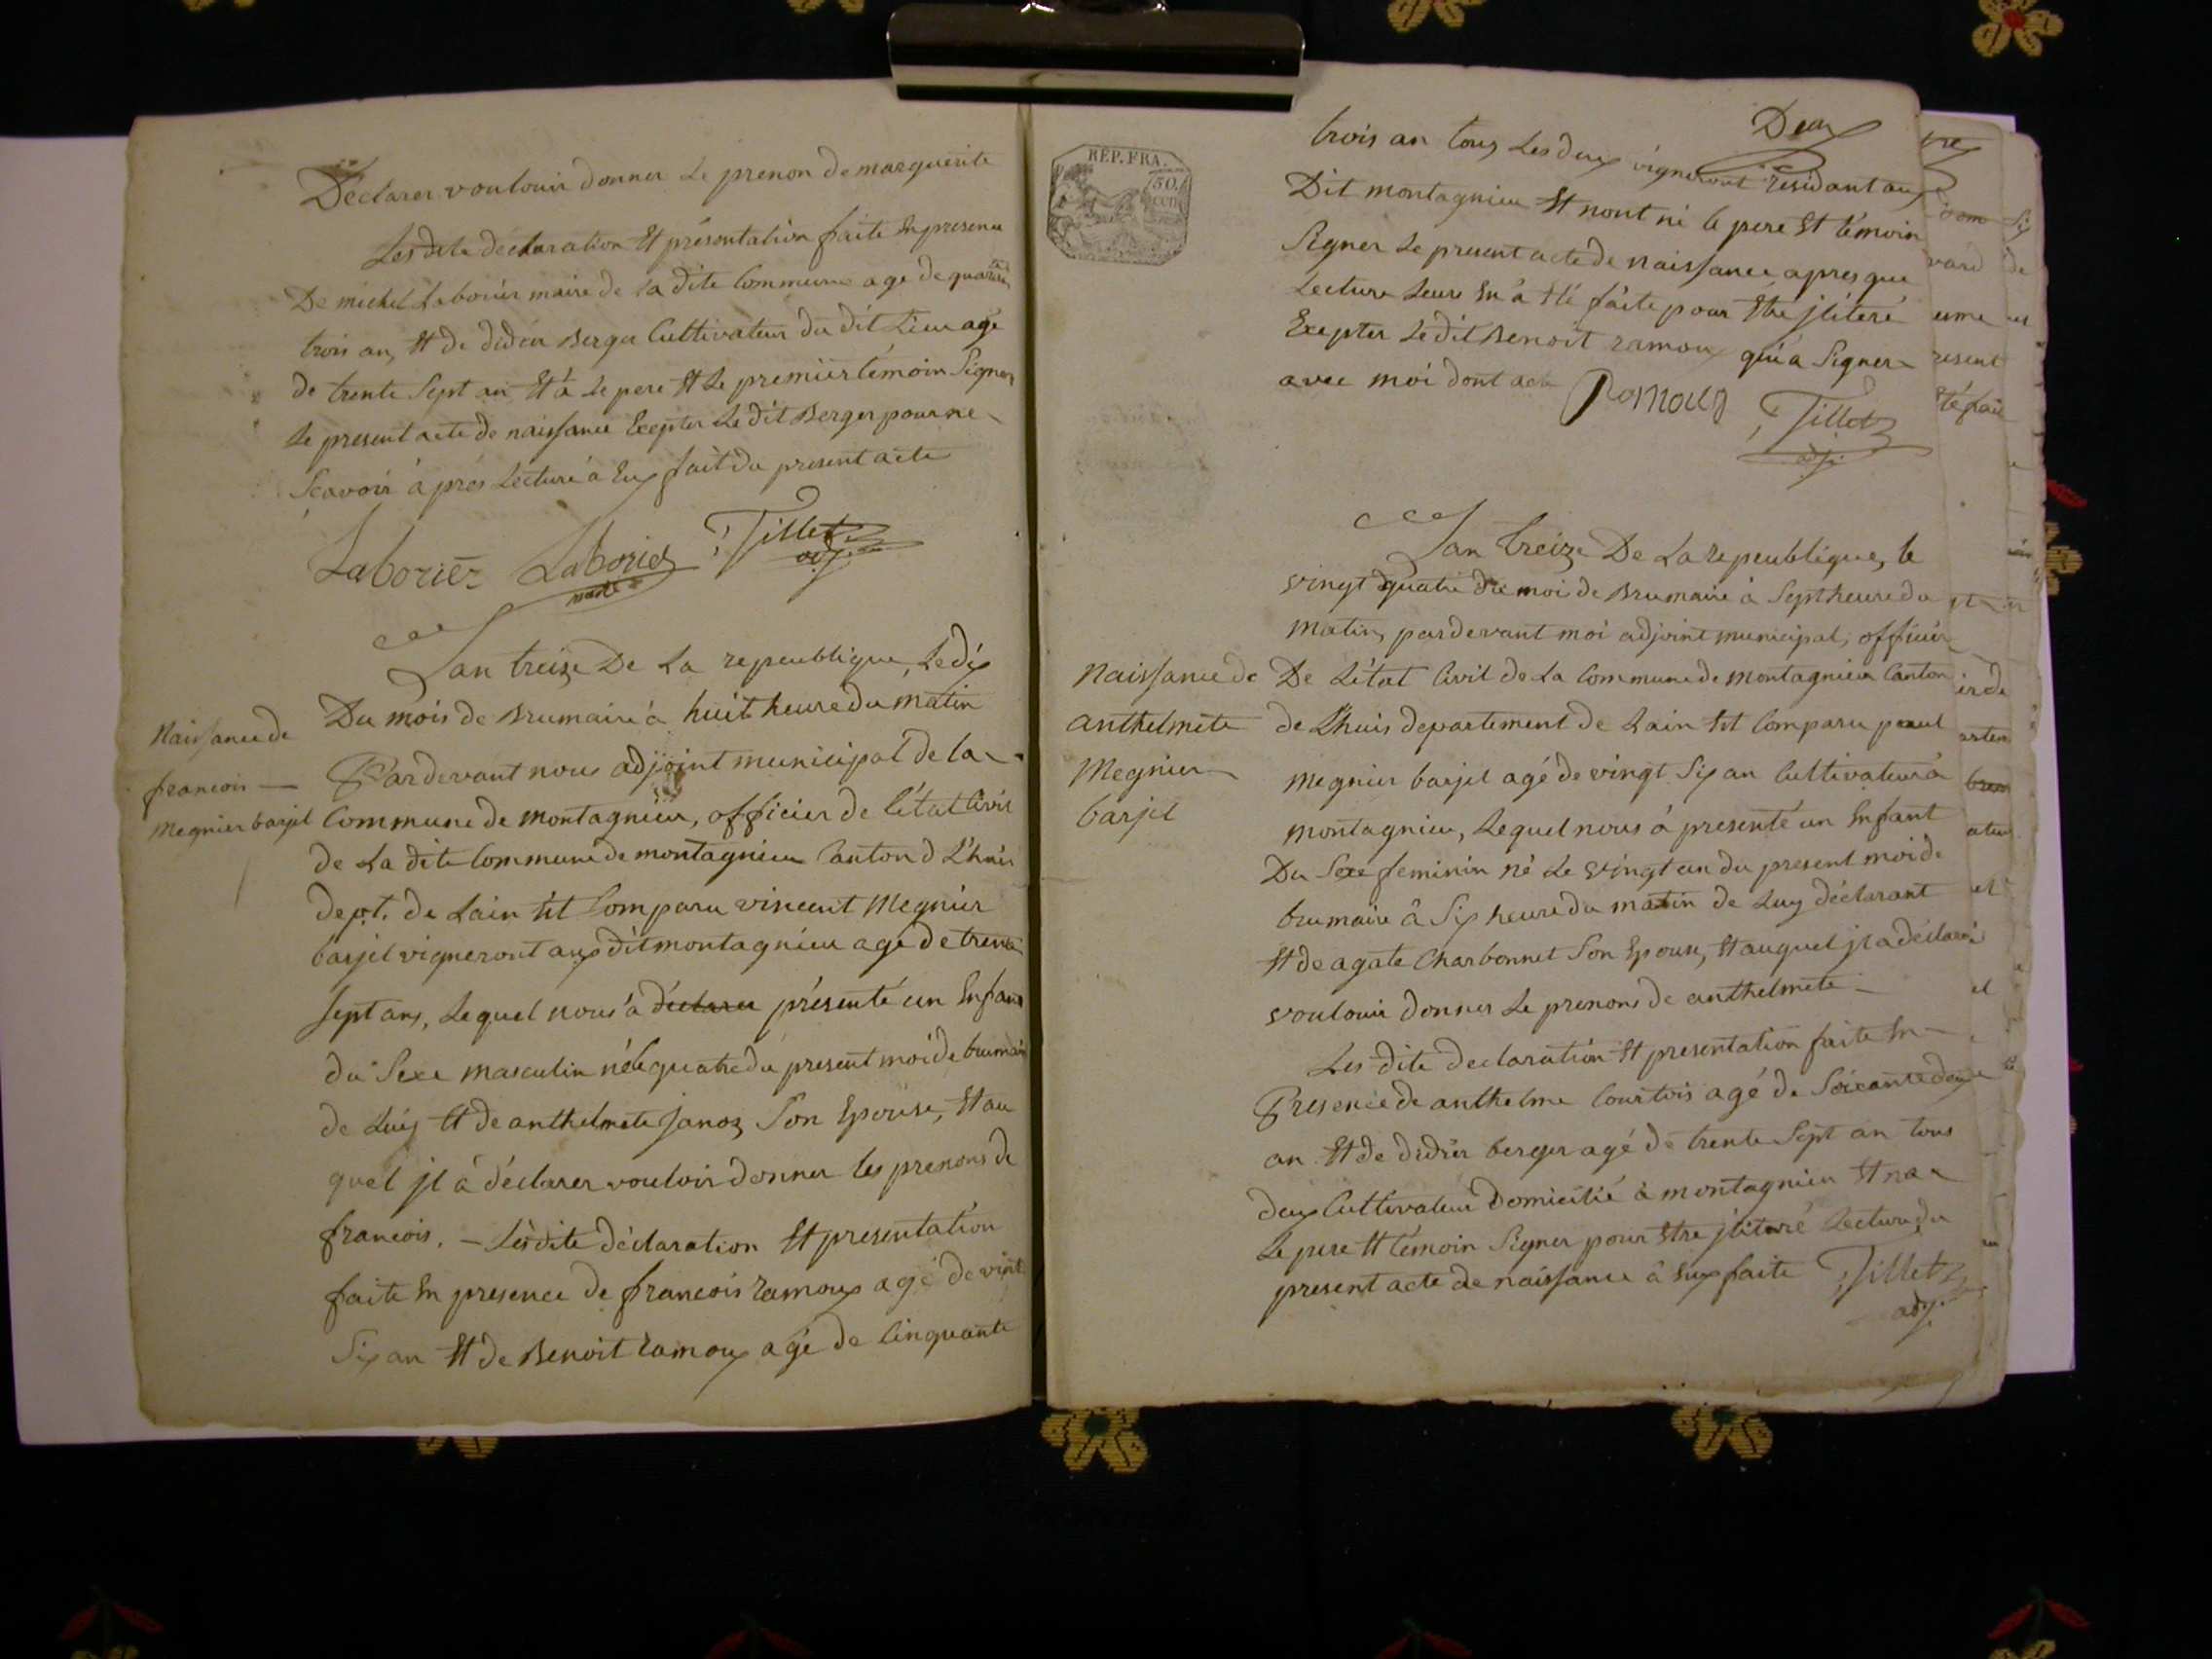 Déclarer voulouir donner Le prenon de marguerite
Les dite déclaration Et présentation faite En presence
De michel Laboriér maire de la dite Commune age de quarente
trois an, Et de didiéu Berger Cultivateur du dit Lieu agé
de trente Sept an Et à Le pere Et Le premiér témoin Signer
Le present acte de naissance Exepter Le dit Berger pour ne
Scavoir à prés Lecture à Eux fait du present acte
Laboriér Laborier Tillet
maire adj.
Lan treize De La repeublique, Le dix
Du mois de Brumaire à huit heure du matin
Naissance de
francois —
Megnier barjel
Pardevant nous adjoint municipal de la
Commune de montagnieu, officier de l'état Civil
de La dite Commune de montagnieu Canton d L'huis
dept. de Lain Est Comparu vincent Megnier
barjel vigneront aux dit montagnieu agé de trente
sept ans, Lequel nous à déclarer présenté un Enfant
du Sexe masculin né le quatre du présent moi de brumaire
de Luy Et de anthelmete Janoz Son Epouse, Et au
quel jl à déclarer vouloir donner les prenons de
francois. – Les dite déclaration Et presentation
faite En presence de francois ramoux agé de vint
Six an Et de Benoit ramoux agé de Cinquante
REP. FRA.
50.
CEN
Deux
trois an tous Les deux vigneront residant aux
Dit montagnieu Et nont ni le pere Et témoin
Signer Le present acte de naissance apres que
Lecture Leure En à Eté faite pour Etre jliteré
Exepter Le dit Benoit ramoux qui a Signer
avec moi dont acte Ramoux Tillet
adj.
Lan treize De La repeublique, le
vingt quatre du moi de Brumaire à Sept heure du
matin, pardevant moi adjoint municipal, officiér
Naissance de
anthelmete
Megnier
barjel
De Létat Civil de La Commune de montagnieu Canton
de Lhuis departement de Lain Est Comparu paul
megnier barjel agé de vingt Six an Cultivateur à
montagnieu, Lequel nous à presenté un Enfant
Du Sexe feminin né Le vingt un du present moi de
brumaire à Six heure du matin de Luy déclarant
Et de agate Charbonnet Son Epouse, Et auquel jl a déclaré
voulouir donner Le prenons de anthelmete
Les dite declaration Et presentation faite En
Presence de anthelme Courtois agé de Soixante deux
an Et de didiér berger agé de trente Sept an tous
deux Cultivateur Domicilié à montagnieu Et na
Le pere Et témoin Signer pour Etre jliteré Lecture du
present acte de naissance à Eux faite Tillet
adj.